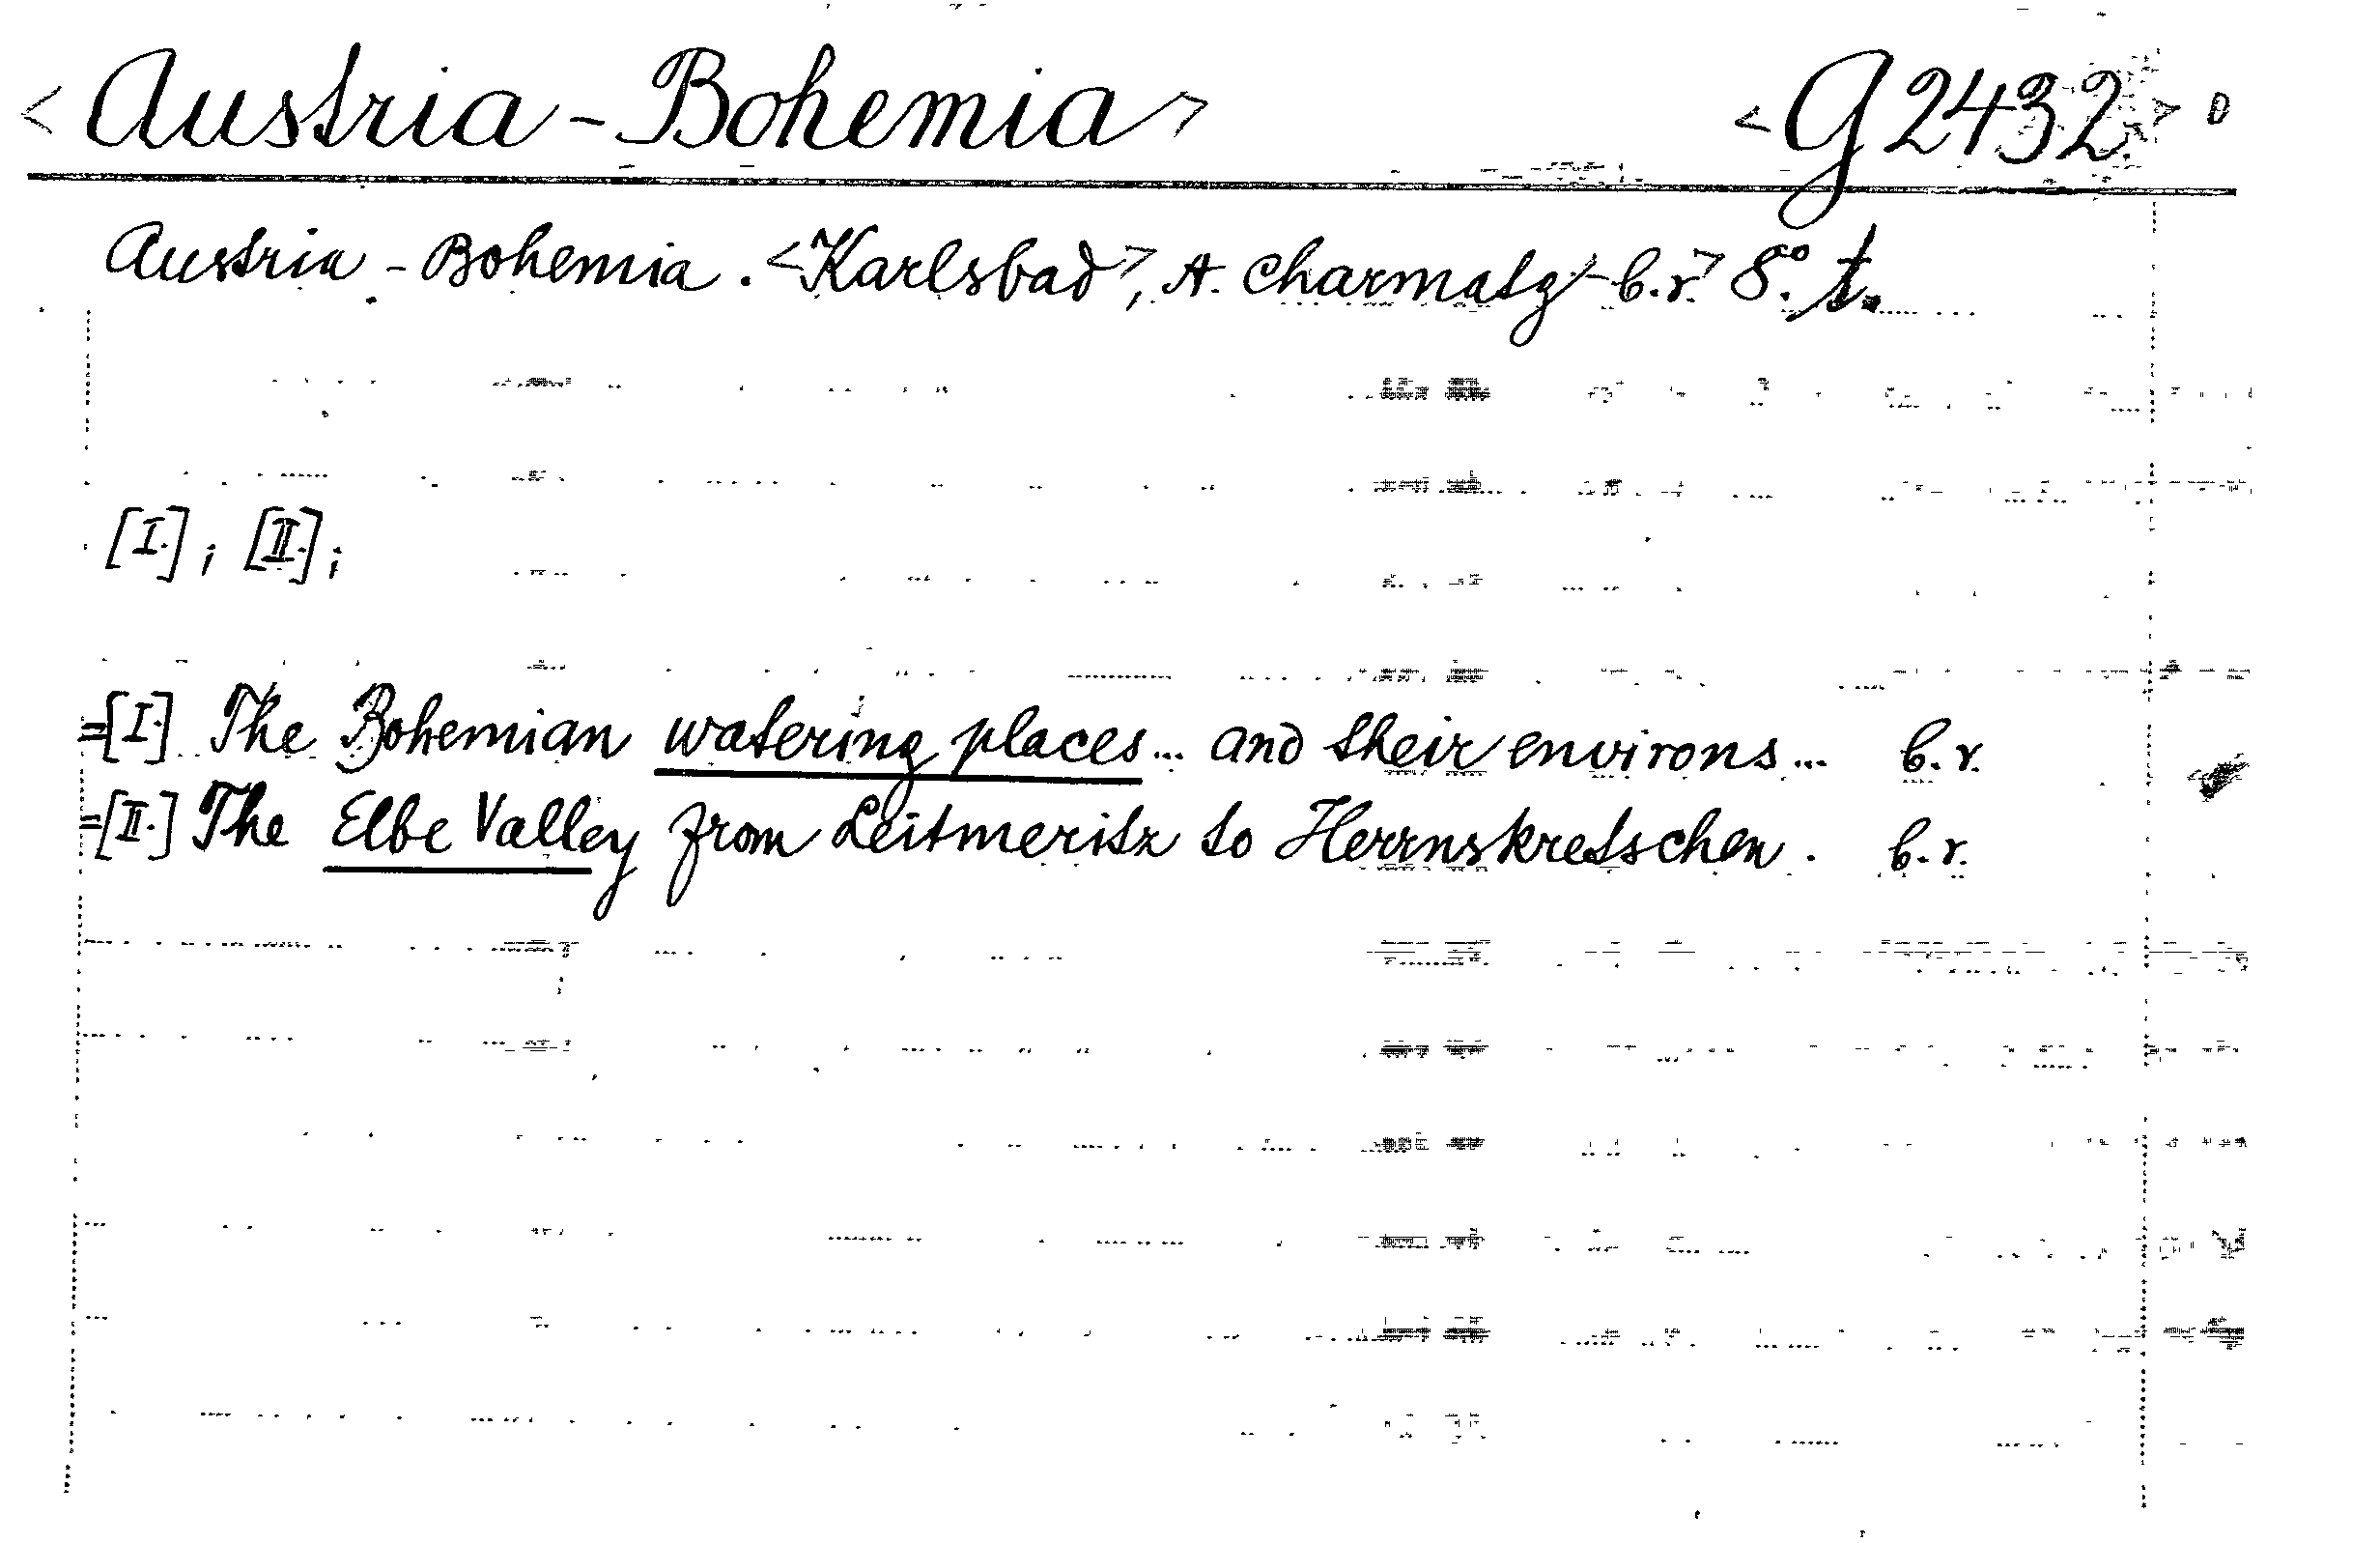 <Austria-Bohemia> <G 2432.> 0
Austria - Bohemia. <Karlsbad>, A. Charmatz <b.r.> 8°. t.
[I.]; [II.];
=[I.] The Bohemian watering places... and their environs... b.r.
=[II.] The Elbe Valley from Leitmeritz to Herrnskretschen. b.r.